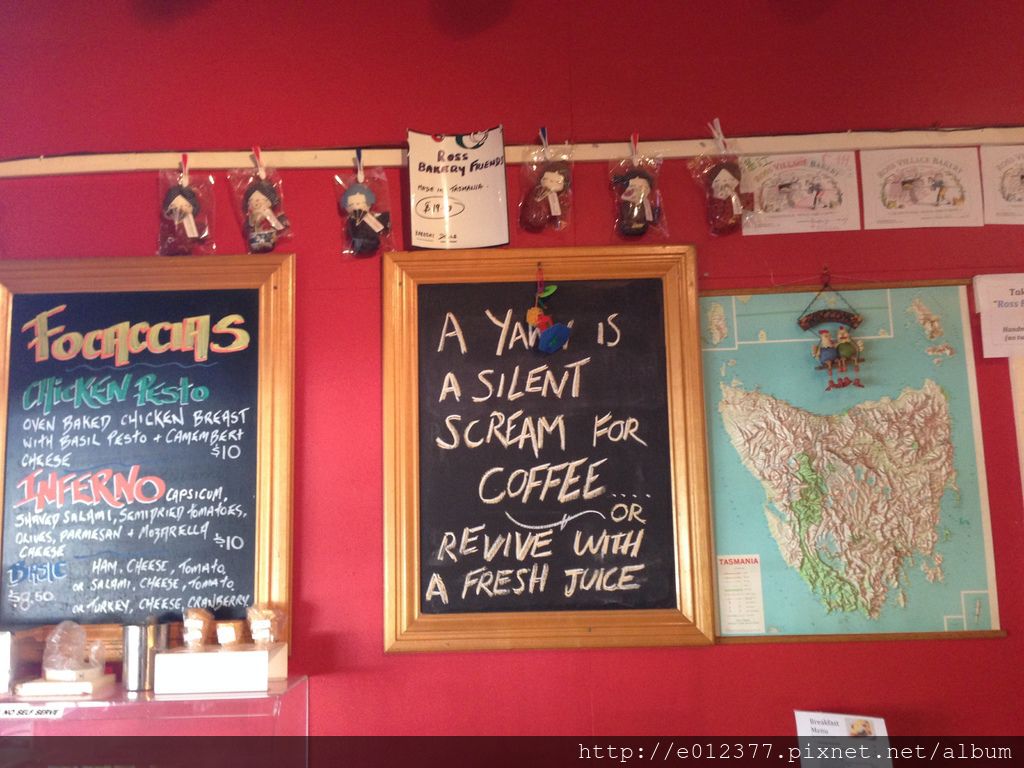 ROSS
BAKERY FRIENDS
MADE IN TASMANIA
ROSS VILLAGE BAKERY
ROSS VILLAGE BAKERY
FOCACCIAS
CHICKEN PESTO
OVEN BAKED CHICKEN BREAST
WITH BASIL PESTO + CAMEMBERT
CHEESE $10
INFERNO CAPSICUM,
SHAVED SALAMI, SEMIDRIED TOMATOES,
OLIVES, PARMESAN + MOZARELLA
CHEESE $10
BASIC HAM, CHEESE, TOMATO
$8.50 OR SALAMI, CHEESE, TOMATO
OR TURKEY, CHEESE, CRANBERRY
NO SELF SERVE
A YAWN IS
A SILENT
SCREAM FOR
COFFEE....
OR
REVIVE WITH
A FRESH JUICE
TASMANIA
"Ross
Breakfast
Menu
http://e012377.pixnet.net/album